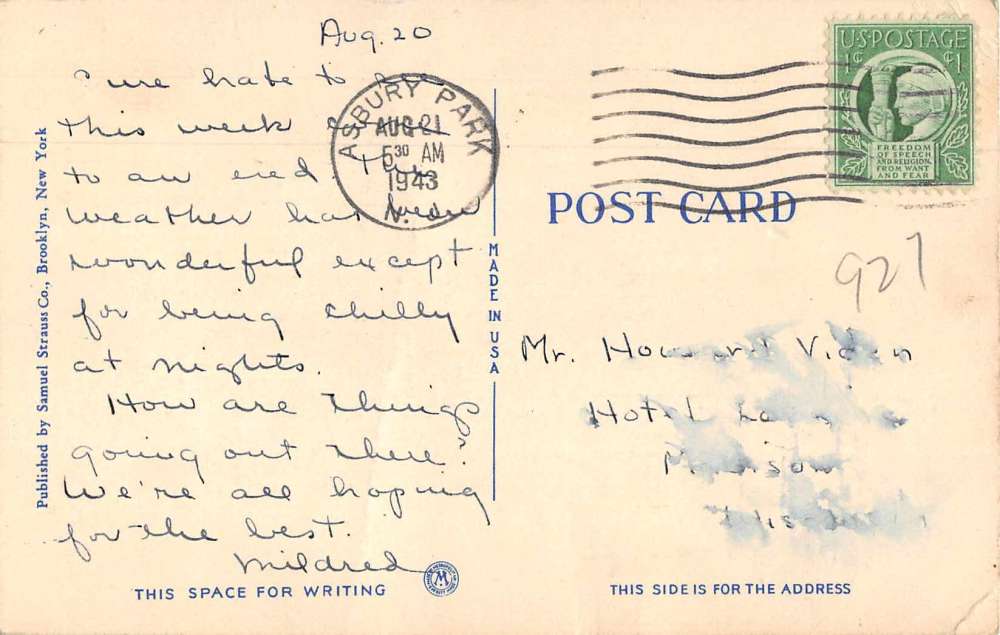 Aug. 20
Sure hate to see
this week
to an end. The
weather has been
wonderful except
for being chilly
at nights.
How are things
going out there?
We're all hoping
for the best.
Mildred
THIS SPACE FOR WRITING
Published by Samuel Strauss Co., Brooklyn, New York
MADE IN USA
ASBURY PARK
AUG 21
5 30 AM
1943
N.J.
U.S. POSTAGE
1¢ ¢1
FREEDOM
OF SPEECH
AND RELIGION,
FROM WANT
AND FEAR
POST CARD
927
Mr. Howard
Hotel
Madison
Wisconsin
THIS SIDE IS FOR THE ADDRESS